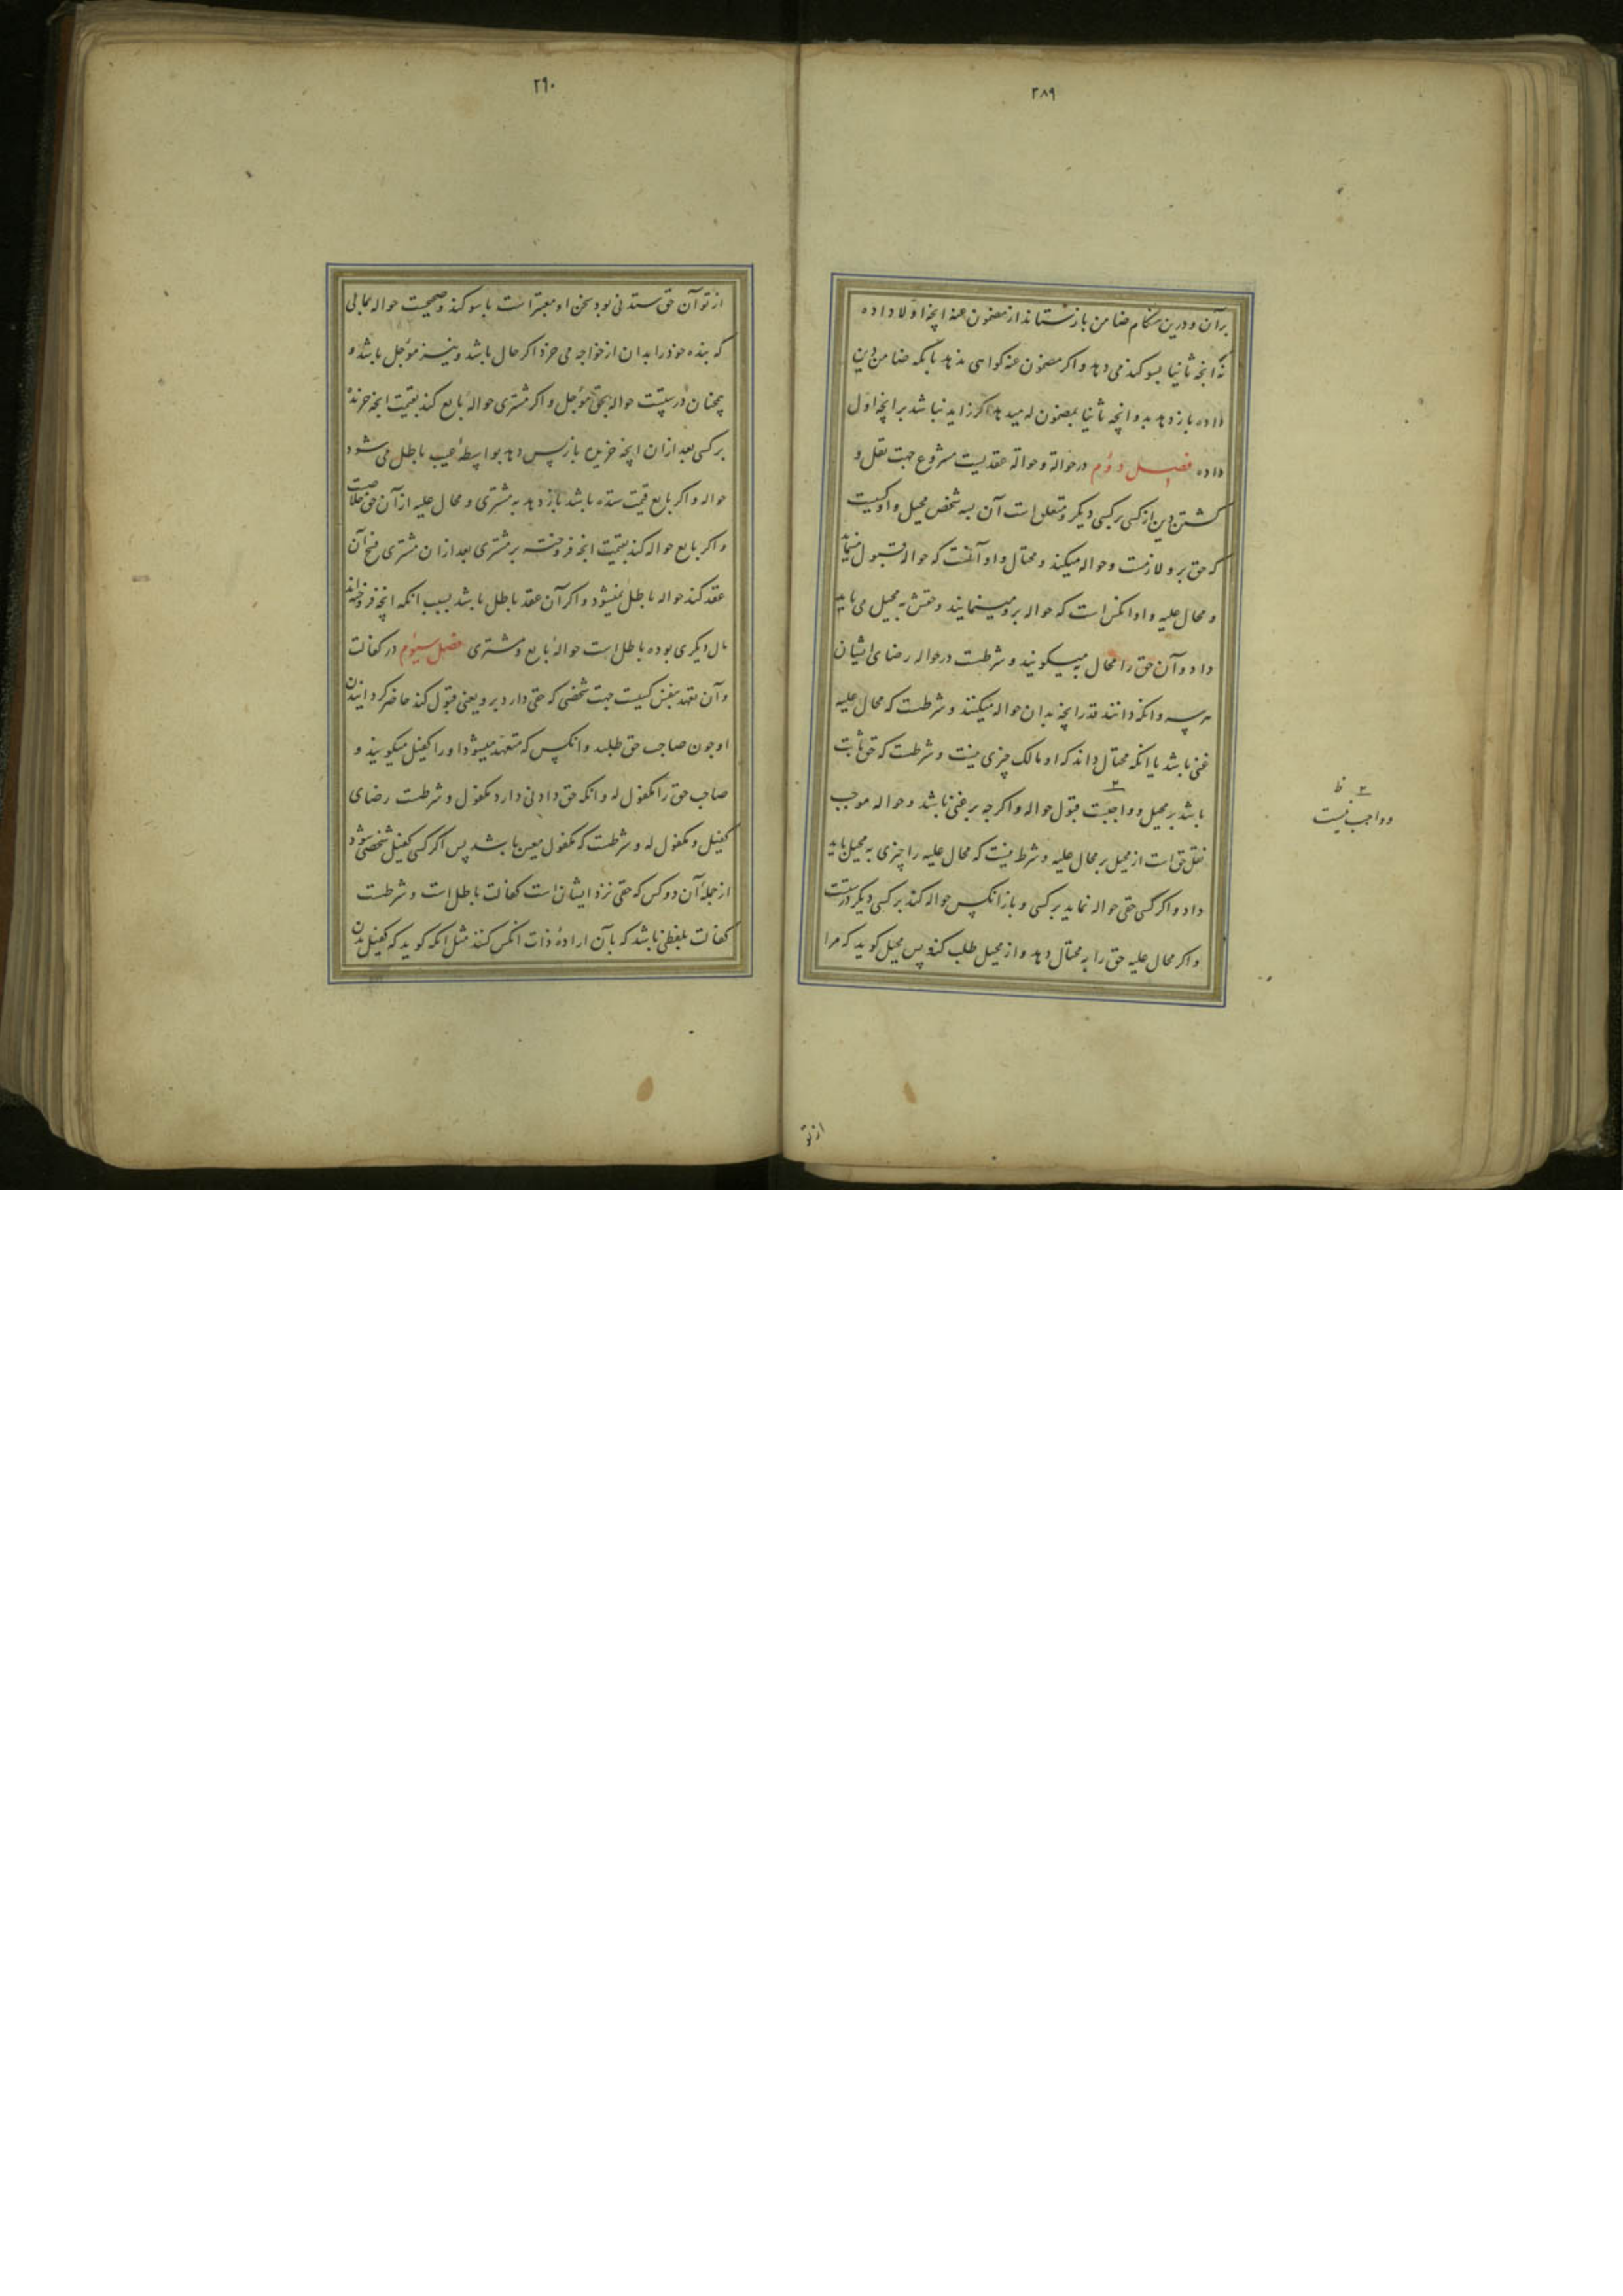 ۲۸۹
برآن و درین هنگام ضامن بازستاند از مضمون عنه انچه اولا داده
نه انچه ثانیا بسوکند می دهد و اکر مضمون عنه کواهی ندهد بانکه ضامن دین
داده باز دهد بدو انچه ثانیا بمضمون له میدهد اکر زاید نباشد بر انچه اول
داده فصل دوم در حوالة و حوالة عقدیست مشروع جهت نقل و
کشتن دین از کسی بر کسی دیکر و متعلق است آن بسه شخص محیل و او کسیت
که حق برو لازمست و حواله میکند و محتال و او آنست که حواله قبول مینماید
و محال علیه و او انکس است که حواله برو مینمایند و حقش به محیل می باید
داد و آن حق را محال به میکویند و شرطست در حواله رضای ایشان
هر سه و انکه دانند قدر انچه بدان حواله میکنند و شرطست که محال علیه
غنی باشد یا انکه محتال داند که او مالک چیزی نیست و شرطست که حق ثابت
باشد بر محیل و واجبست قبول حواله و اکر چه بر غنی باشد و حواله موجب
نقل حق است از محیل بر محال علیه و شرط نیست که محال علیه را چیزی به محیل باید
داد و اکر کسی حقی حواله نماید بر کسی و باز انکس حواله کند بر کسی دیکر درستست
و اکر محال علیه حق را به محتال دهد و از محیل طلب کند پس محیل کوید که مرا
۲ ظ
و واجب نیست
از تو
۲۹۰
از تو آن حق ستدنی بود سخن او معتبر است با سوکند و صحیحست حواله بمالی
که بنده خود را بدان از خواجه می خرد اکر حال باشد و نیز مؤجل باشد و
همچنان درستست حواله بحق مؤجل و اکر مشتری حوالۀ بایع کند بقیمت انچه خریده
بر کسی بعد از ان انچه خریده باز پس دهد بواسطۀ عیب باطل می شود
حواله و اکر بایع قیمت ستده باشد باز دهد به مشتری و محال علیه از آن حق خلاصست
و اکر بایع حواله کند بقیمت انچه فروخته بر مشتری بعد از ان مشتری فسخ آن
عقد کند حواله باطل نمیشود و اکر آن عقد باطل باشد بسبب انکه انچه فروخته اند
مال دیکری بوده باطل است حوالۀ بایع و مشتری فصل سیوم در کفالت
و آن تعهد بنفس کسیت جهت شخصی که حقی دارد برو یعنی قبول کند حاضر کردانیدن
او چون صاحب حق طلبد و انکس که متعهد میشود او را کفیل میکویند و
صاحب حق را مکفول له و انکه حق دادنی دارد مکفول و شرطست رضای
کفیل و مکفول له و شرطست که مکفول معین باشد پس اکر کسی کفیل شخصی شود
از جملۀ آن دو کس که حقی نزد ایشان است کفالت باطل است و شرطست
کفالت بلفظی باشد که بآن ارادۀ ذات انکس کنند مثل انکه کوید که کفیل بدن